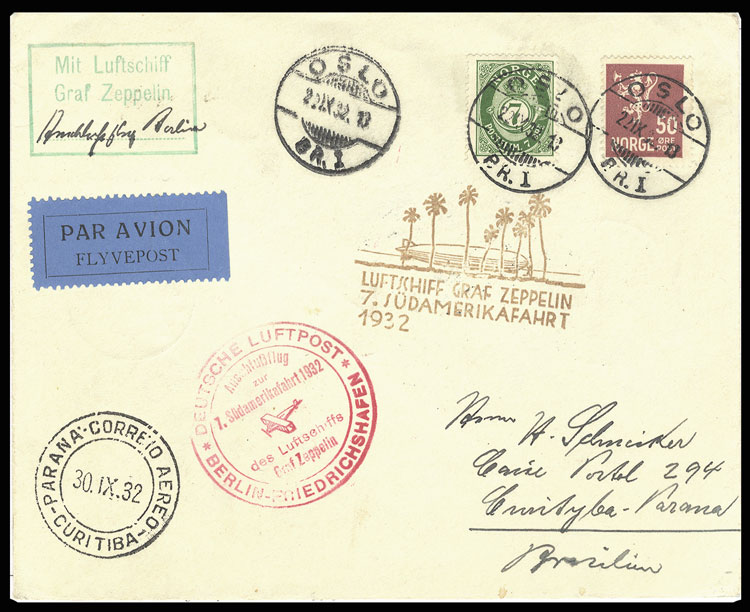 Mit Luftschiff
Graf Zeppelin
Anschlussflug Berlin
OSLO
BR. I
NORGE
7
OSLO
BR. I
50
NORGE ØRE
OSLO
BR. I
PAR AVION
FLYVEPOST
LUFTSCHIFF GRAF ZEPPELIN
7. SÜDAMERIKAFAHRT
1932
* DEUTSCHE LUFTPOST *
Anschlußflug
zur
7. Südamerikafahrt 1932
des Luftschiffs
Graf Zeppelin
BERLIN-FRIEDRICHSHAFEN
PARANÁ-CORREIO AEREO
30.IX.32
-CURITIBA-
Herrn H. Schnicker
Caixa Postel 294
Curityba-Parana
Brasilien